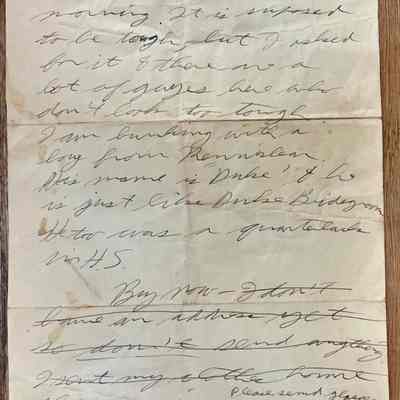 morning. It is suposed
to be tough, but I asked
for it & there are a
lot of guyes here who
don't look too tough
I am bunking with a
boy from
His name is Duke & he
is just like Duke
He too was a quarterback
in HS.
Bey now - I don't
have an address yet
so don't send anything
I sent my clothes home
Please send